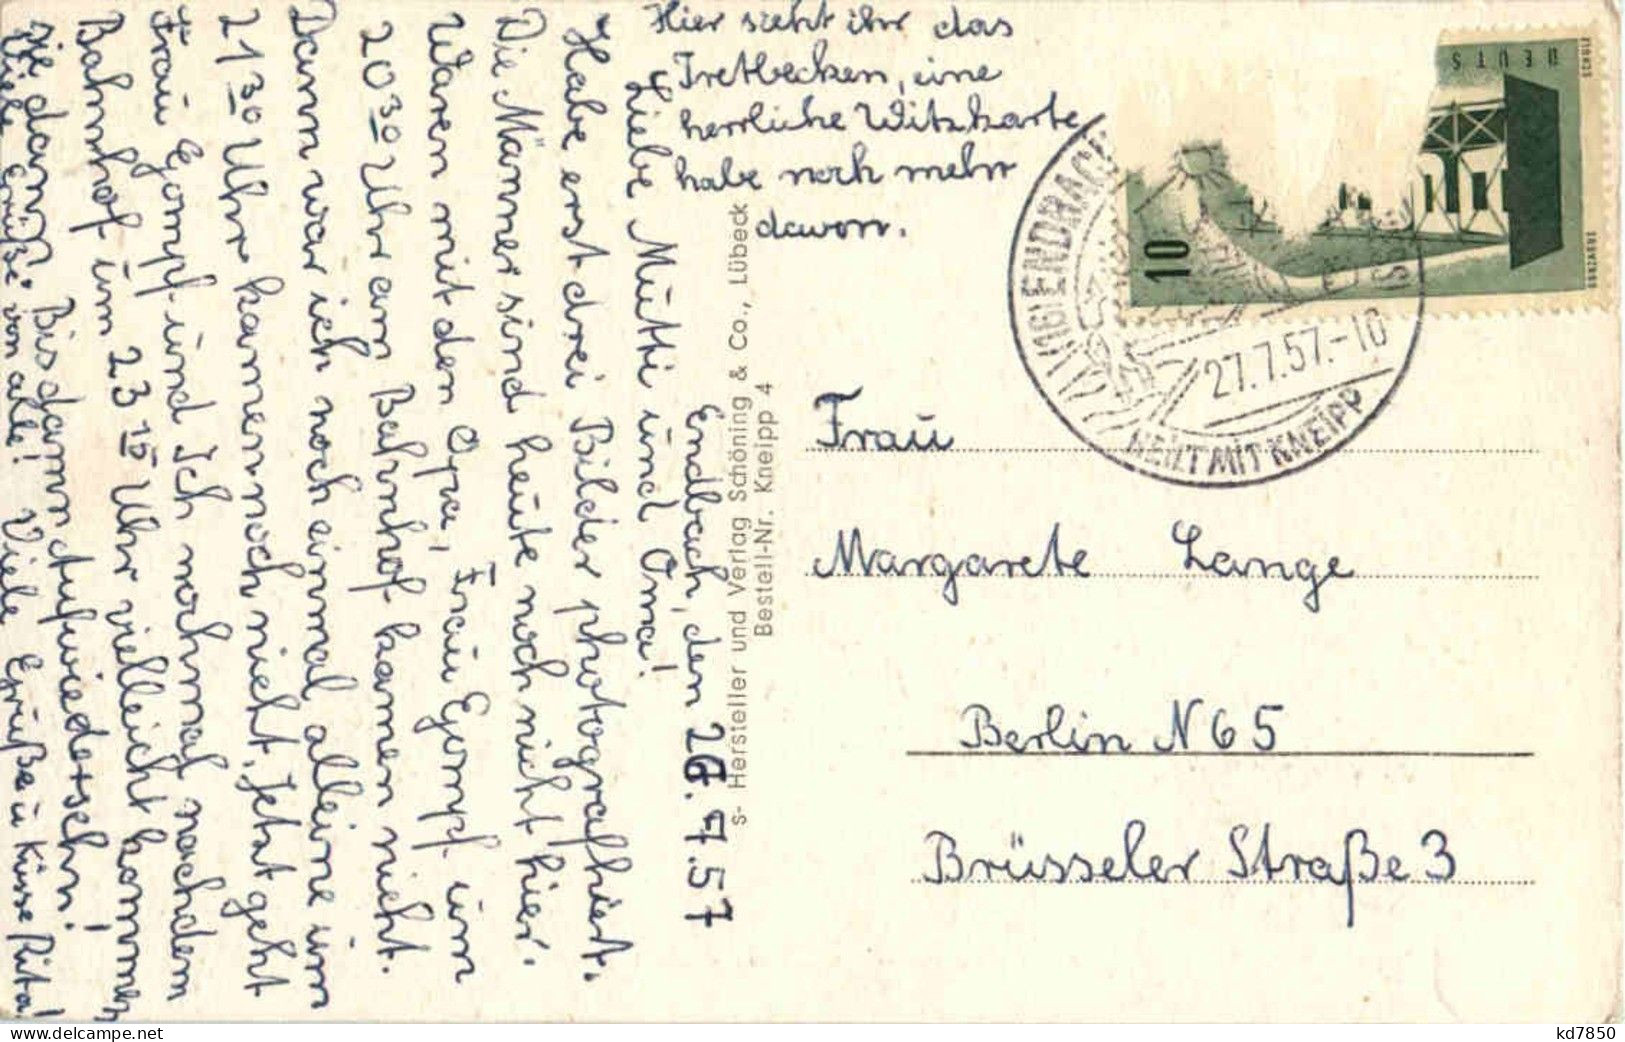 Hier sieht ihr das
Tretbecken, eine
herrliche Witzkarte
habe noch mehr
davon.
Endbach, den 26.7.57
Liebe Mutti und Oma!
Habe erst drei Bilder photografiert.
Die Männer sind heute noch nicht hier.
Waren mit den Opa, Frau Gompf um
20 30 Uhr am Bahnhof kamen nicht.
Dann war ich noch einmal alleine um
21 30 Uhr kamen noch nicht. Jetzt geht
Frau Gompf und Ich nochmal nach dem
Bahnhof um 23 15 Uhr vielleicht kommen
sie dann. Bis dann Aufwiedersehn!
Viele Grüße von alle! Viele Grüße u Küsse Rita!
s- Hersteller und Verlag Schöning & Co., Lübeck
Bestell-Nr. Kneipp 4
DEUTS
10
27.7.57.-10
HEILT MIT KNEIPP
Frau
Margarete Lange
Berlin N 65
Brüsseler Straße 3
kd7850